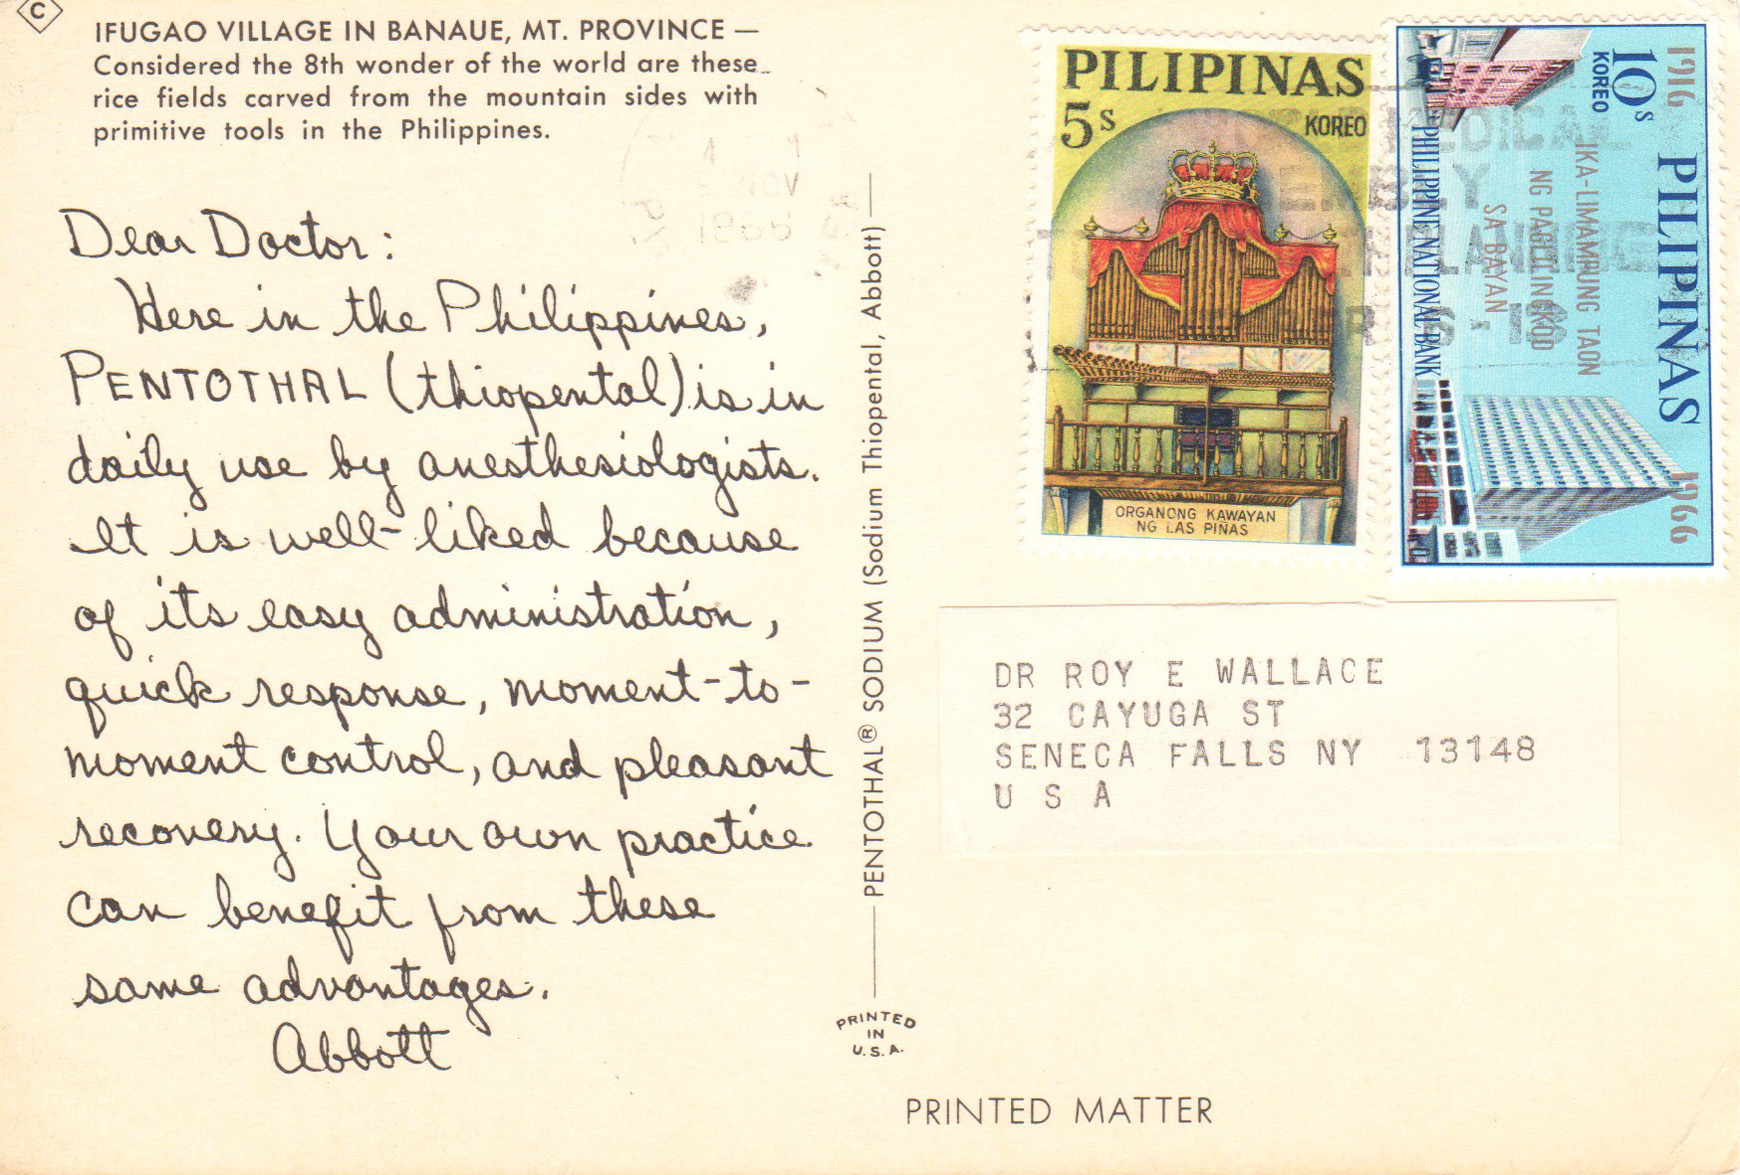 C
IFUGAO VILLAGE IN BANAUE, MT. PROVINCE —
Considered the 8th wonder of the world are these
rice fields carved from the mountain sides with
primitive tools in the Philippines.
Dear Doctor:
Here in the Philippines,
PENTOTHAL (thiopental) is in
daily use by anesthesiologists.
It is well-liked because
of its easy administration,
quick response, moment-to-
moment control, and pleasant
recovery. Your own practice
can benefit from these
same advantages.
Abbott
PENTOTHAL® SODIUM (Sodium Thiopental, Abbott)
PRINTED
IN
U.S.A.
PILIPINAS
5s
KOREO
ORGANONG KAWAYAN
NG LAS PIÑAS
1916
1966
PILIPINAS
10s
KOREO
IKA-LIMAMPUNG TAON
NG PAGLILINGKOD
SA BAYAN
PHILIPPINE NATIONAL BANK
DR ROY E WALLACE
32 CAYUGA ST
SENECA FALLS NY 13148
U S A
PRINTED MATTER